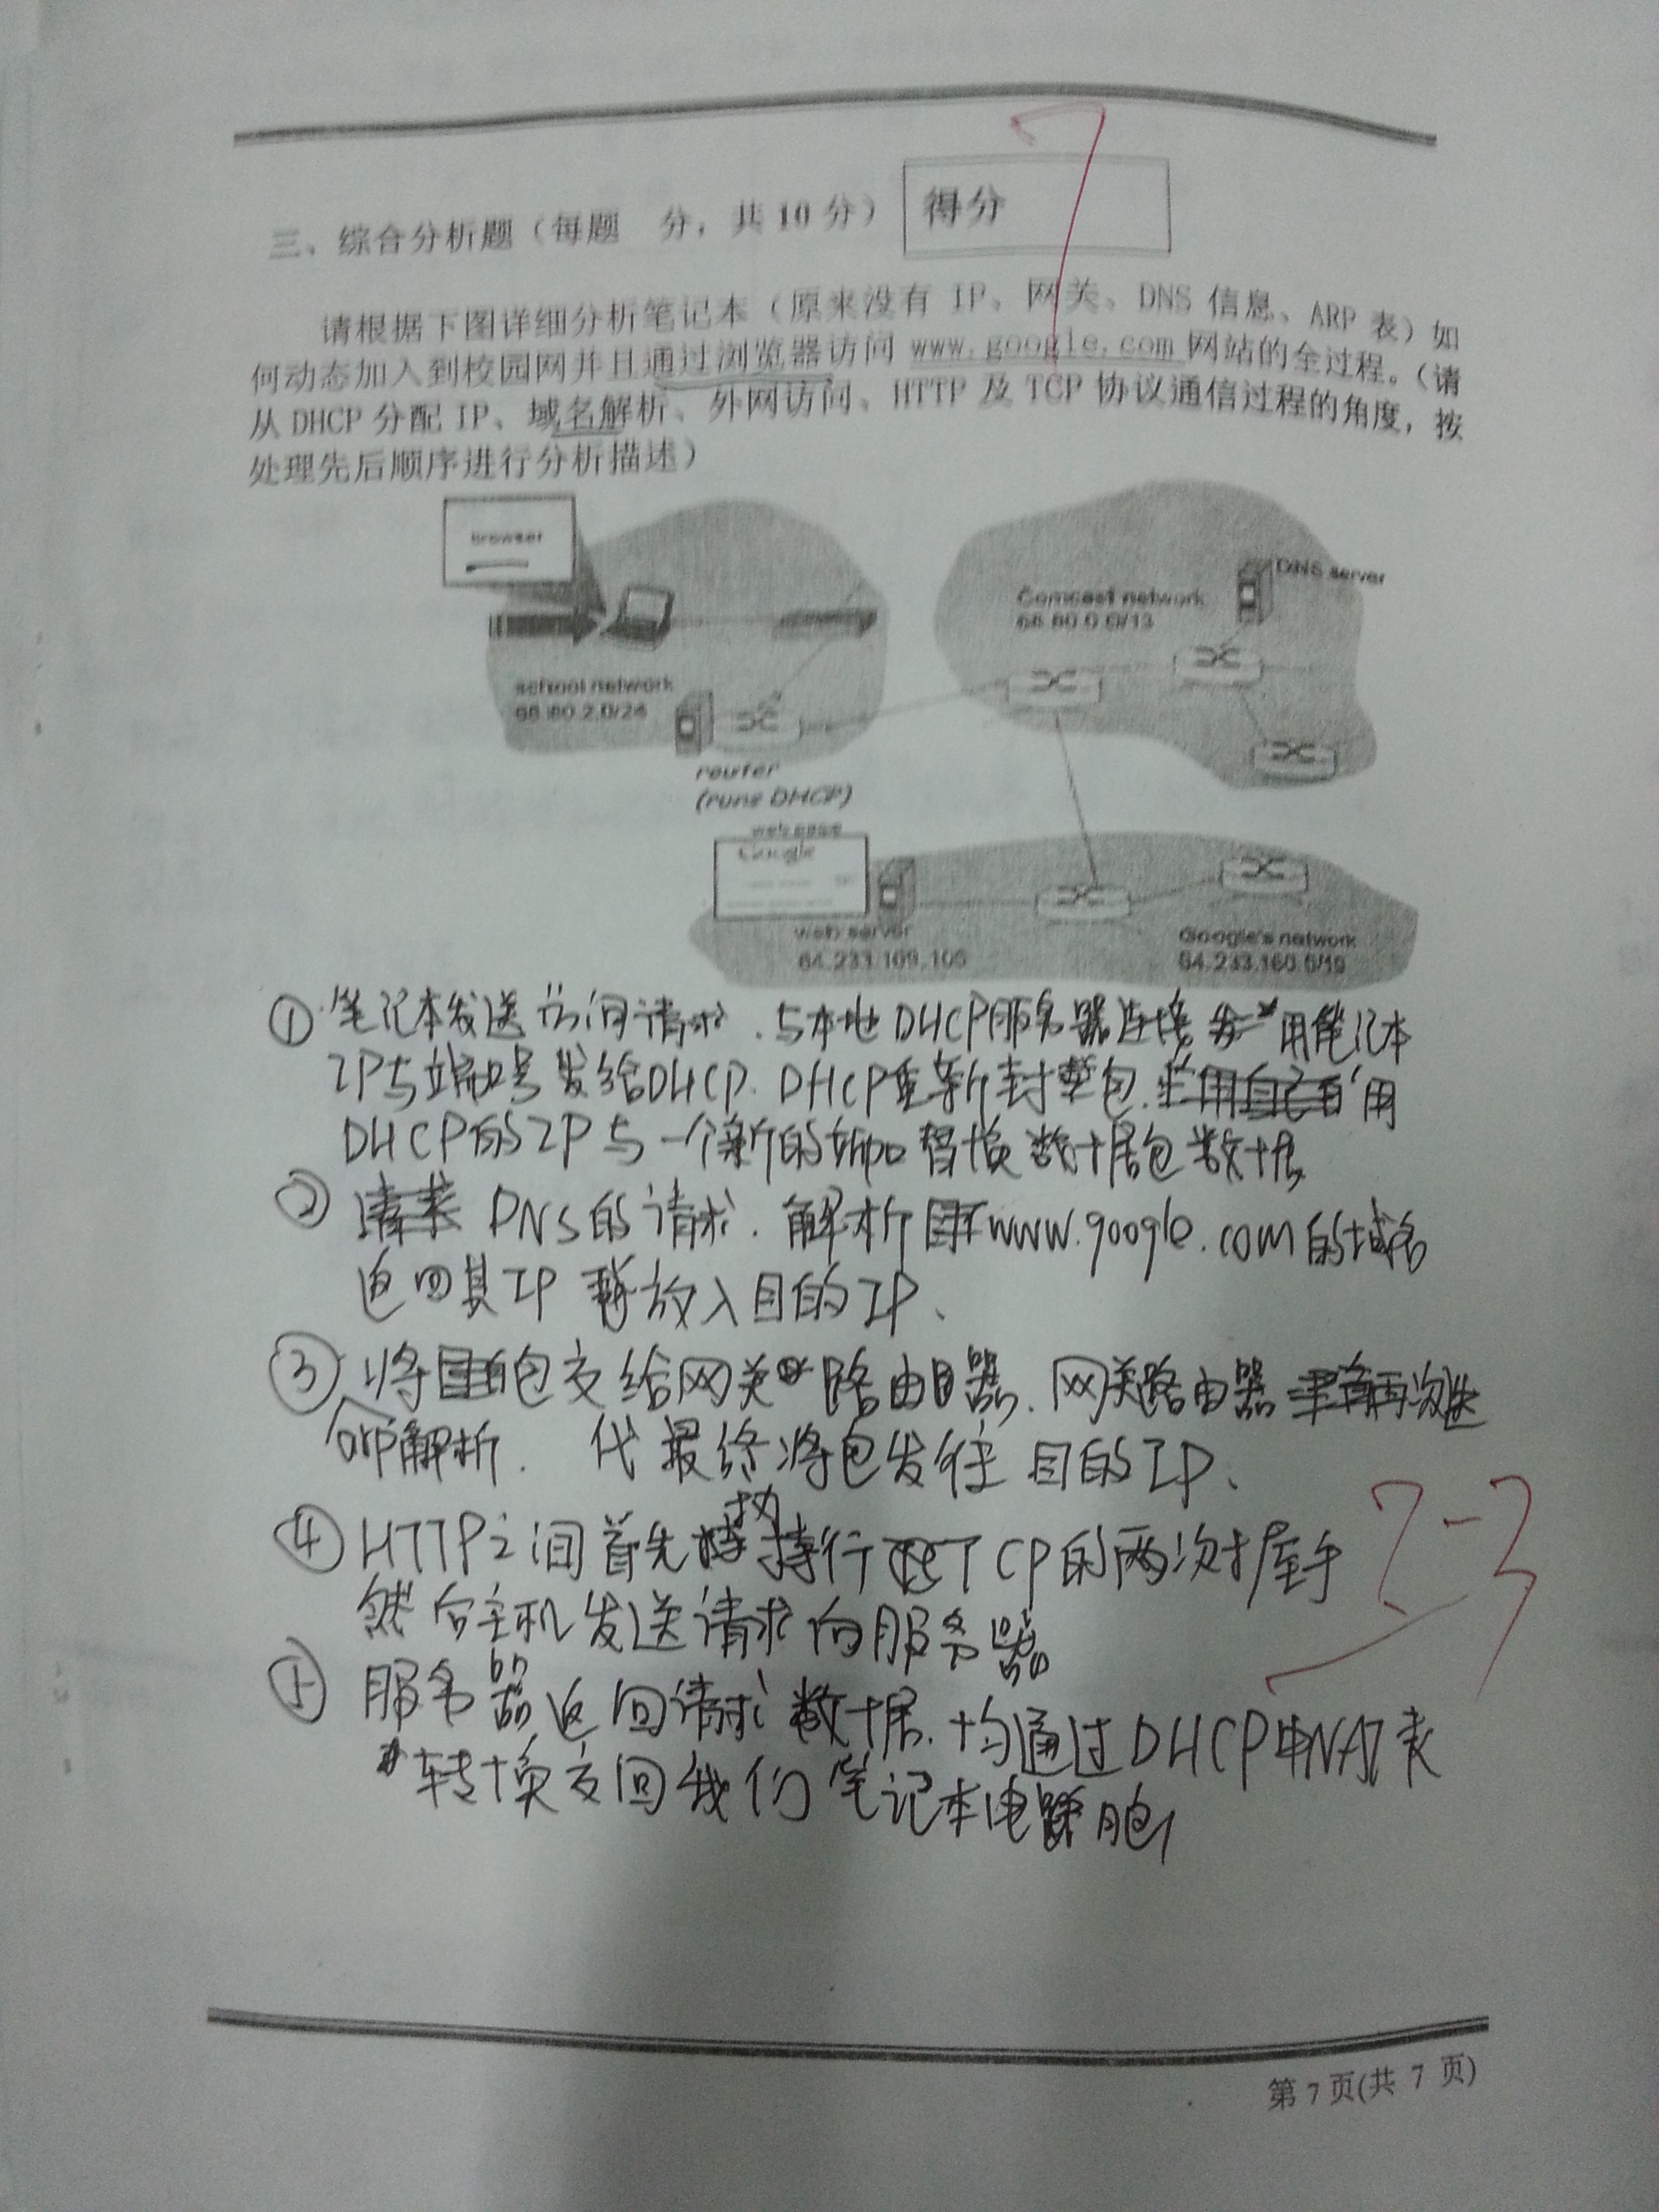 7
三、综合分析题（每题 分，共10分） 得分
请根据下图详细分析笔记本（原来没有 IP、网关、DNS 信息、ARP 表）如
何动态加入到校园网并且通过浏览器访问 www.google.com 网站的全过程。（请
从 DHCP 分配 IP、域名解析、外网访问、HTTP 及 TCP 协议通信过程的角度，按
处理先后顺序进行分析描述）
browser
DNS server
Comcast network
68.80.0.0/13
school network
68.80.2.0/24
router
(runs DHCP)
web page
Google
web server
64.233.169.105
Google's network
64.233.160.0/19
① 笔记本发送访问请求．与本地DHCP服务器连接 用笔记本
IP与端口号发给DHCP．DHCP重新封装包． 用
DHCP的IP与一个新的端口替换数据包数据
② DNS的请求．解析 www.google.com的域名
返回其IP 放入目的IP、
③ 将 包交给网关 路由器．网关路由器
arp解析． 最终将包发往目的IP、
④ HTTP之间首先 执行 TCP的两次握手
然后主机发送请求向服务器
-3
⑤ 服务器返回请求数据．均通过DHCP中NAT表
转换交回我们笔记本电脑
第 7 页(共 7 页)